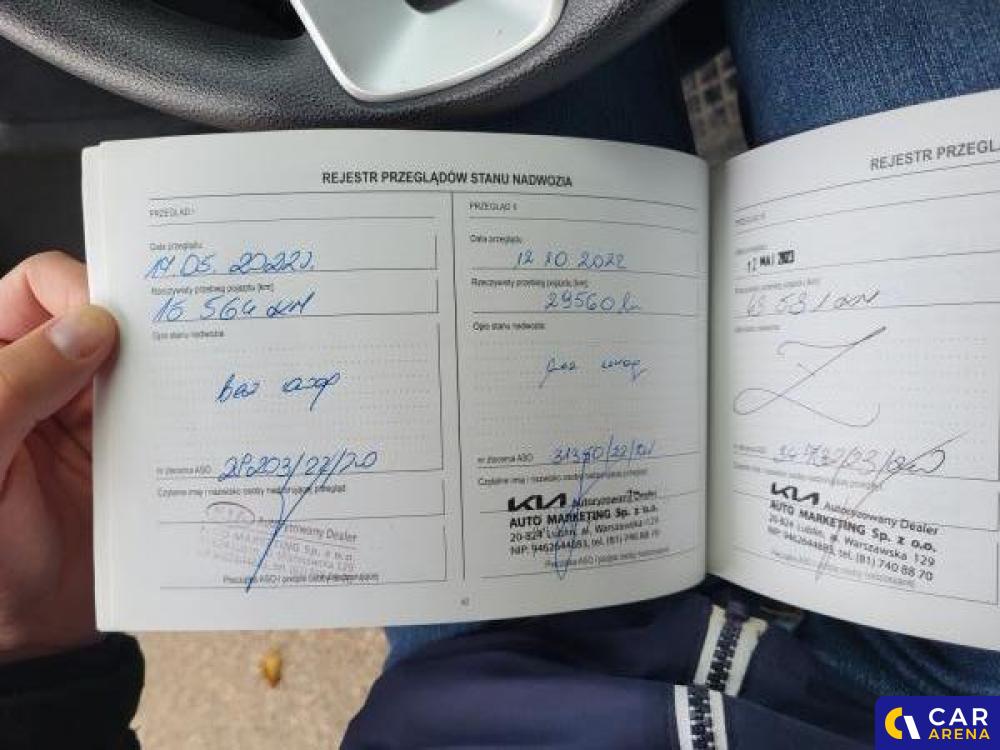 REJESTR PRZEGLĄDÓW STANU NADWOZIA
PRZEGLĄD I
Data przeglądu
05. 2022r.
Rzeczywisty przebieg pojazdu [km]
16 564 km
Opis stanu nadwozia:
Bez uwag
nr zlecenia ASO
Czytelne imię i nazwisko osoby nadzorującej przegląd
Autoryzowany Dealer
MARKETING Sp. z o.o.
Pieczątka ASO i podpis osoby nadzorującej
PRZEGLĄD II
Data przeglądu
12 10 2022
Rzeczywisty przebieg pojazdu [km]
29560 km
Opis stanu nadwozia:
Bez uwag
nr zlecenia ASO
Czytelne imię i nazwisko osoby nadzorującej przegląd
KIA Autoryzowany Dealer
AUTO MARKETING Sp. z o.o.
20-824 Lublin, al. Warszawska 129
NIP: 9462644683, tel. (81) 740 88 70
Pieczątka ASO i podpis osoby nadzorującej
42
REJESTR PRZEGLĄ
PRZEGLĄD III
12 MAJ 2023
Rzeczywisty przebieg pojazdu [km]
nr zlecenia ASO
KIA Autoryzowany Dealer
AUTO MARKETING Sp. z o.o.
20-824 Lublin, al. Warszawska 129
NIP: 9462644683, tel. (81) 740 88 70
Pieczątka ASO i podpis osoby nadzorującej
CAR
ARENA